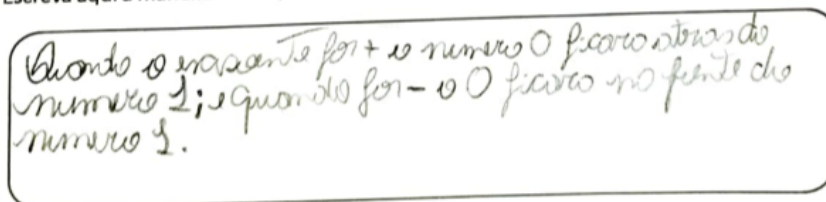 Escreva aqui a
Quando o expoente for + o numero 0 ficara atras do
numero 1; e quando for - o 0 ficara na frente do
numero 1.